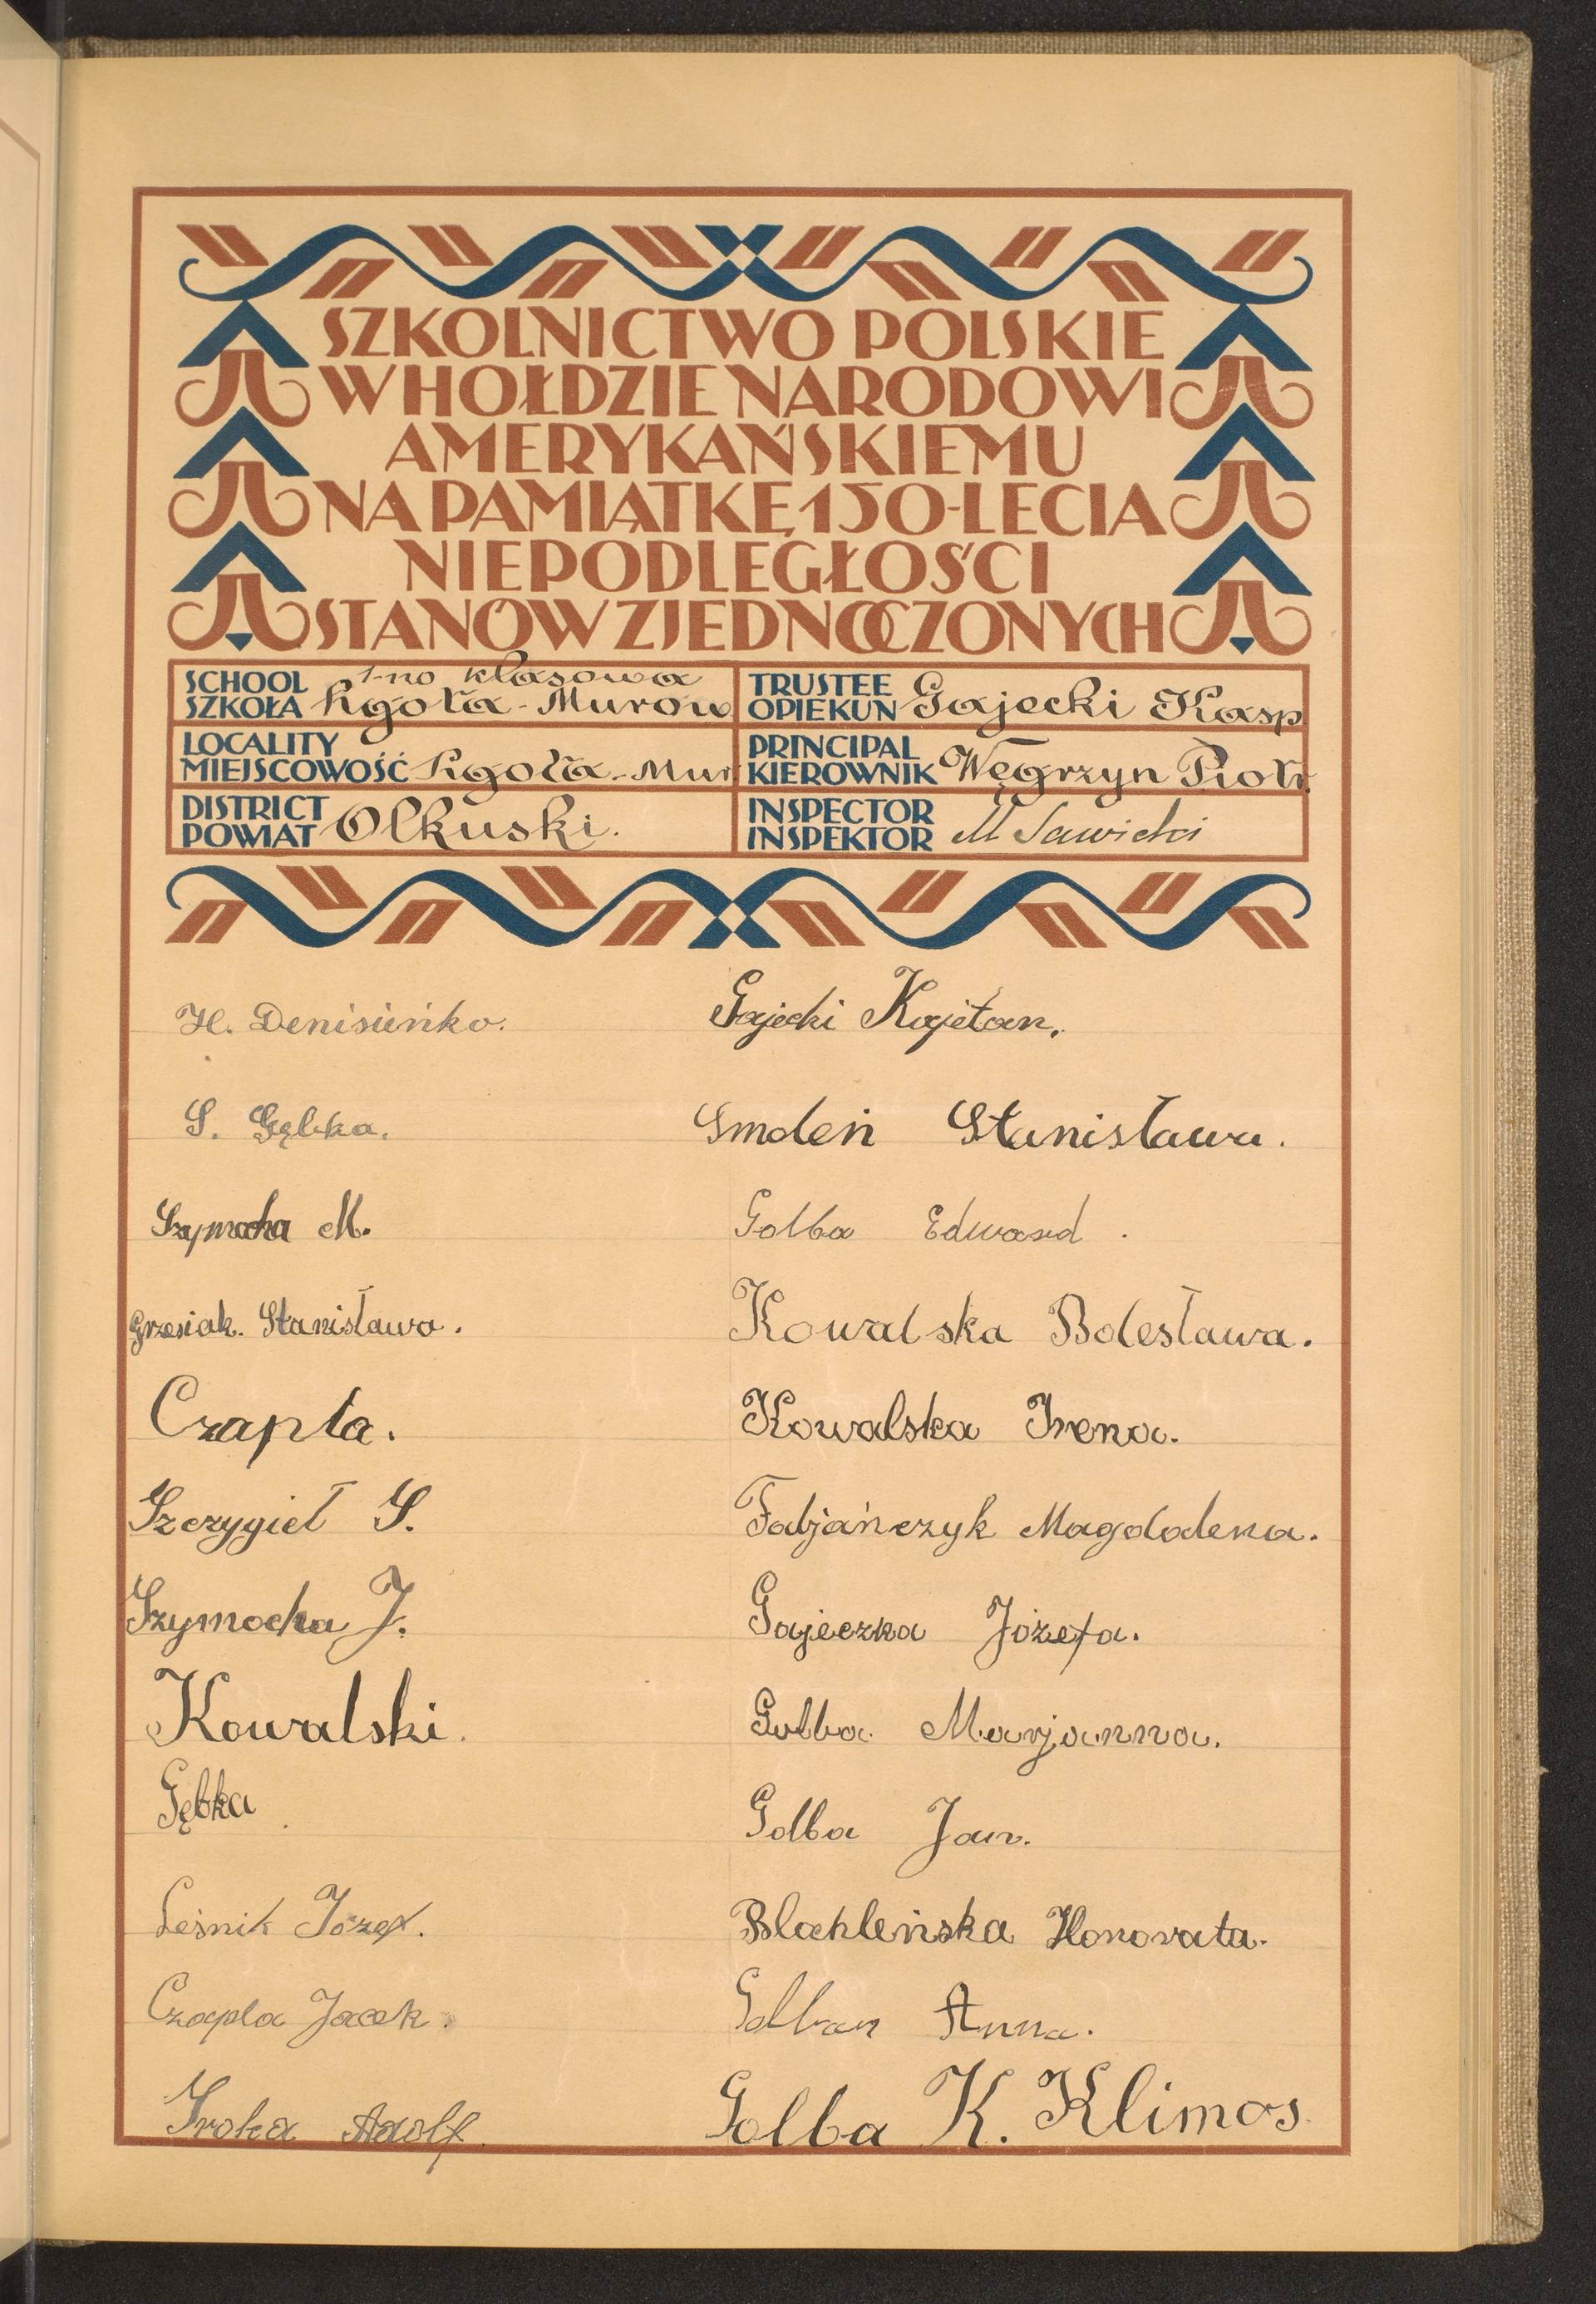 SZKOLNICTWO POLSKIE
W HOŁDZIE NARODOWI
AMERYKAŃSKIEMU
NA PAMIĄTKĘ 150-LECIA
NIEPODLEGŁOŚCI
STANÓW ZJEDNOCZONYCH
SCHOOL
SZKOŁA
1-no klasowa
Zgoła-Murow
TRUSTEE
OPIEKUN
Gajecki Kasp
LOCALITY
MIEJSCOWOŚĆ
Zgoła-Mur
PRINCIPAL
KIEROWNIK
Węgrzyn Piotr
DISTRICT
POWIAT
Olkuski.
INSPECTOR
INSPEKTOR
M Sawicki
H. Denisieńko.
S. Gębka.
Szymocha M.
Grzesiak. Stanisława.
Czapla.
Szczygieł S.
Szymocha J.
Kowalski.
Gębka
Leśnik Józef.
Czapla Jacek.
Sroka Adolf.
Gajecki Kajetan.
Smoleń Stanisława.
Golba Edward.
Kowalska Bolesława.
Kowalska Irena.
Fabjańczyk Magdalena.
Gajeczka Józefa.
Golba Marjanna.
Golba Jan.
Honorata.
Anna.
Golba K. Klimas